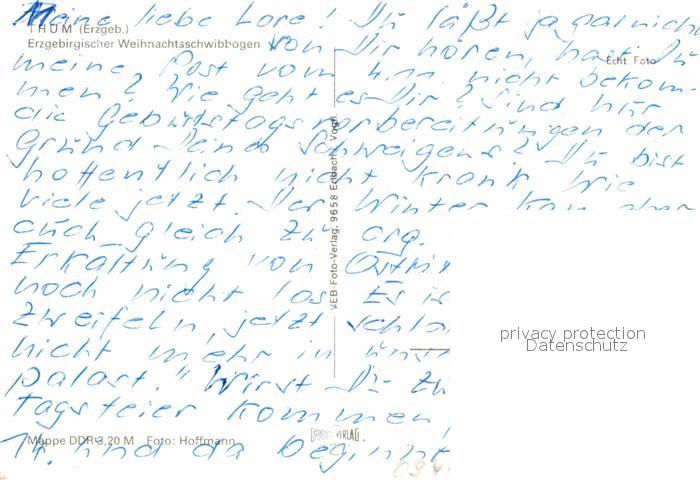 Meine liebe Lore! Du läßt ja gar nicht
THUM (Erzgeb.)
Erzgebirgischer Weihnachtsschwibbogen
von Dir hören, hast Du
Echt Foto
meine Post vom 4.11. nicht bekom-
men? Wie geht es Dir? Sind nur
die Geburtstagsvorbereitungen der
Grund Deines Schweigens? Du bist
hoffentlich nicht krank wie
viele jetzt. Der Winter kam aber
auch gleich zu arg.
Erkältung von
noch nicht los. Es is
zweifeln, jetzt
nicht mehr in
palast." Wirst Du zu
tagsfeier kommen
Mappe DDR 3,20 M Foto: Hoffmann
14. und da beginnt
VEB-Foto-Verlag, 9658 Erlbach i. Vogtl.
VERLAG
privacy protection
Datenschutz